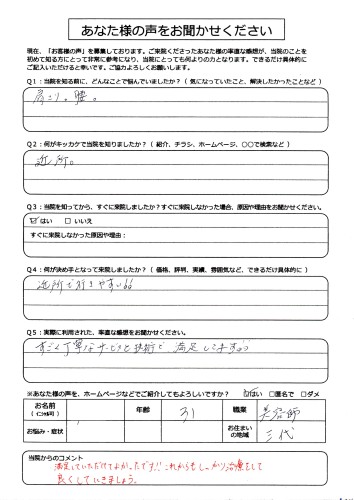 あなた様の声をお聞かせください
現在、「お客様の声」を募集しております。ご来院くださったあなた様の率直な感想が、当院のことを
初めて知る方にとって非常に参考になり、当院にとっても何よりの力となります。できるだけ具体的に
ご記入いただけると幸いです。ご協力よろしくお願いします。
Q1：当院を知る前に、どんなことで悩んでいましたか？（気になっていたこと、解決したかったことなど）
肩こり。腰。
Q2：何がキッカケで当院を知りましたか？（紹介、チラシ、ホームページ、〇〇で検索など）
近所。
Q3：当院を知ってから、すぐに来院しましたか？すぐに来院しなかった場合、原因や理由をお聞かせください。
☑はい □いいえ
すぐに来院しなかった原因や理由：
Q4：何が決め手となって来院しましたか？（価格、評判、実績、雰囲気など、できるだけ具体的に）
近所で行きやすい
Q5：実際に利用された、率直な感想をお聞かせください。
すごく丁寧なサービスと技術で満足してます
※あなた様の声を、ホームページなどでご紹介してもよろしいですか？ ☑はい □匿名で □ダメ
お名前 年齢 31 職業 美容師
（イニシャル可）
お悩み・症状 お住まいの地域 三代
当院からのコメント
満足していただけてよかったです!! これからもしっかり治療をして
良くしていきましょう。